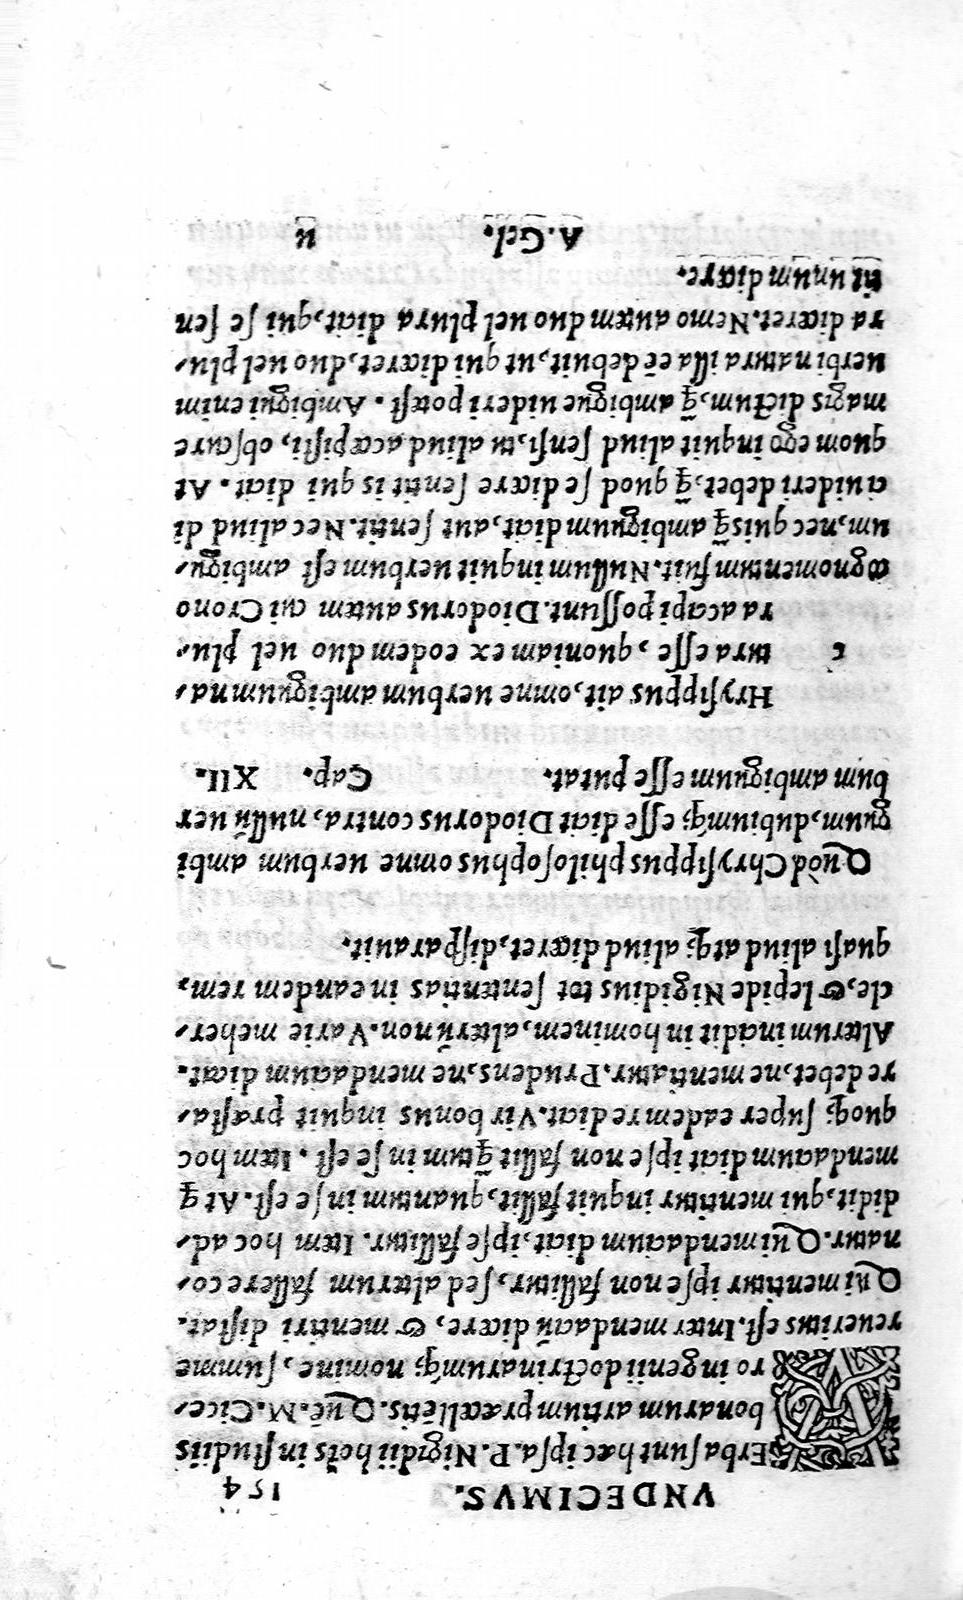 VNDECIMVS. 154
VErba sunt hæc ipsa. P. Nigidii hoīs in studiis
bonarum artium præcellētis. Quē. M. Cice-
ro ingenii doctrinarumq́; nomine, summe
reueritus est. Inter mendaciū dicere, & mentiri distat.
Qui mentitur ipse non fallitur, sed alterum fallere co-
natur. Qui mendacium dicit, ipse fallitur. Item hoc ad-
didit, qui mentitur inquit fallit, quantum in se est. At q̄
mendacium dicit ipse non fallit q̄tum in se est. Item hoc
quoq; super eadem re dicit. Vir bonus inquit præsta-
re debet, ne mentiatur. Prudens, ne mendacium dicat.
Alterum incidit in hominem, alterū non. Varie meher-
cle, & lepide Nigidius tot sententias in eandem rem,
quasi aliud atq; aliud diceret, disparauit.
Quòd Chrysippus philosophus omne uerbum ambi
guum, dubiumq́; esse dicit Diodorus contra, nullū uer
bum ambiguum esse putat. Cap. XII.
c HRysippus ait, omne uerbum ambiguum na-
tura esse, quoniam ex eodem duo uel plu-
ra accipi possunt. Diodorus autem cui Crono
cognomentum fuit. Nullum inquit uerbum est ambigu-
um, nec quisq̄ ambiguum dicit, aut sentit. Nec aliud di
ci uideri debet, q̄ quod se dicere sentit is qui dicit. At
quom ego inquit aliud sensi, tu aliud accepisti, obscure
magis dictum, q̄ ambigue uideri potest. Ambigui enim
uerbi natura illa eē debuit, ut qui diceret, duo uel plu-
ra diceret. Nemo autem duo uel plura dicit, qui se sen
sit unum dicere.
A. Gel. u